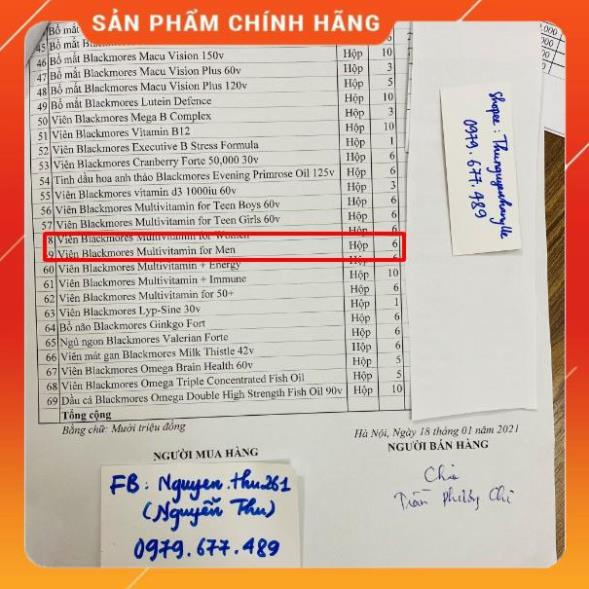 SẢN PHẨM CHÍNH HÃNG
45 Bổ mắt
46 Bổ mắt Blackmores Macu Vision 150v Hộp 10
47 Bổ mắt Blackmores Macu Vision Plus 60v Hộp 3
48 Bổ mắt Blackmores Macu Vision Plus 120v Hộp 5
49 Bổ mắt Blackmores Lutein Defence Hộp 10
50 Viên Blackmores Mega B Complex Hộp 3
51 Viên Blackmores Vitamin B12 Hộp 10
52 Viên Blackmores Executive B Stress Formula Hộp 1
53 Viên Blackmores Cranberry Forte 50,000 30v Hộp 6
54 Tinh dầu hoa anh thảo Blackmores Evening Primrose Oil 125v Hộp 6
55 Viên Blackmores vitamin d3 1000iu 60v Hộp 3
56 Viên Blackmores Multivitamin for Teen Boys 60v Hộp 6
57 Viên Blackmores Multivitamin for Teen Girls 60v Hộp 6
8 Viên Blackmores Multivitamin for Women Hộp 6
9 Viên Blackmores Multivitamin for Men Hộp 6
60 Viên Blackmores Multivitamin + Energy Hộp 6
61 Viên Blackmores Multivitamin + Immune Hộp 10
62 Viên Blackmores Multivitamin for 50+ Hộp 6
63 Viên Blackmores Lyp-Sine 30v Hộp 1
64 Bổ não Blackmores Ginkgo Fort Hộp 6
65 Ngủ ngon Blackmores Valerian Forte Hộp 6
66 Viên mát gan Blackmores Milk Thistle 42v Hộp 6
67 Viên Blackmores Omega Brain Health 60v Hộp 5
68 Viên Blackmores Omega Triple Concentrated Fish Oil Hộp 5
69 Dầu cá Blackmores Omega Double High Strength Fish Oil 90v Hộp 10
Tổng cộng
Bằng chữ: Mười triệu đồng
Hà Nội, Ngày 18 tháng 01 năm 2021
NGƯỜI MUA HÀNG
NGƯỜI BÁN HÀNG
FB: Nguyen.thu261
(Nguyễn Thu)
0979.677.489
Chi
Trần Phương Chi
Shopee: Thunguyenhangue
0979.677.489